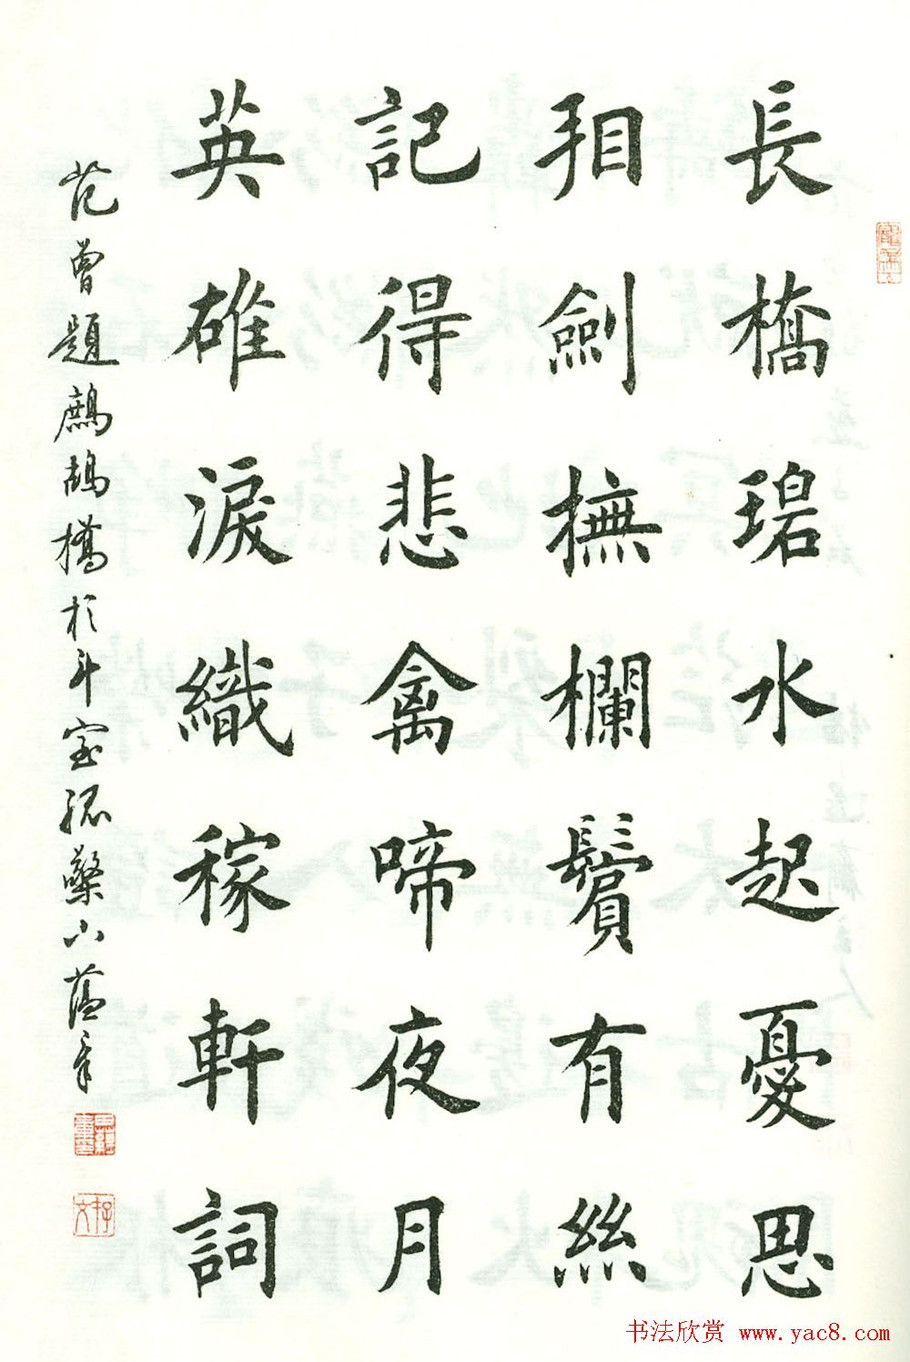 長橋碧水起憂思
抇劍撫欄鬢有絲
記得悲禽啼夜月
英雄淚織稼軒詞
范曾題鷓鴣橋於斗室孤藥小蘊年
书法欣赏 www.yac8.com